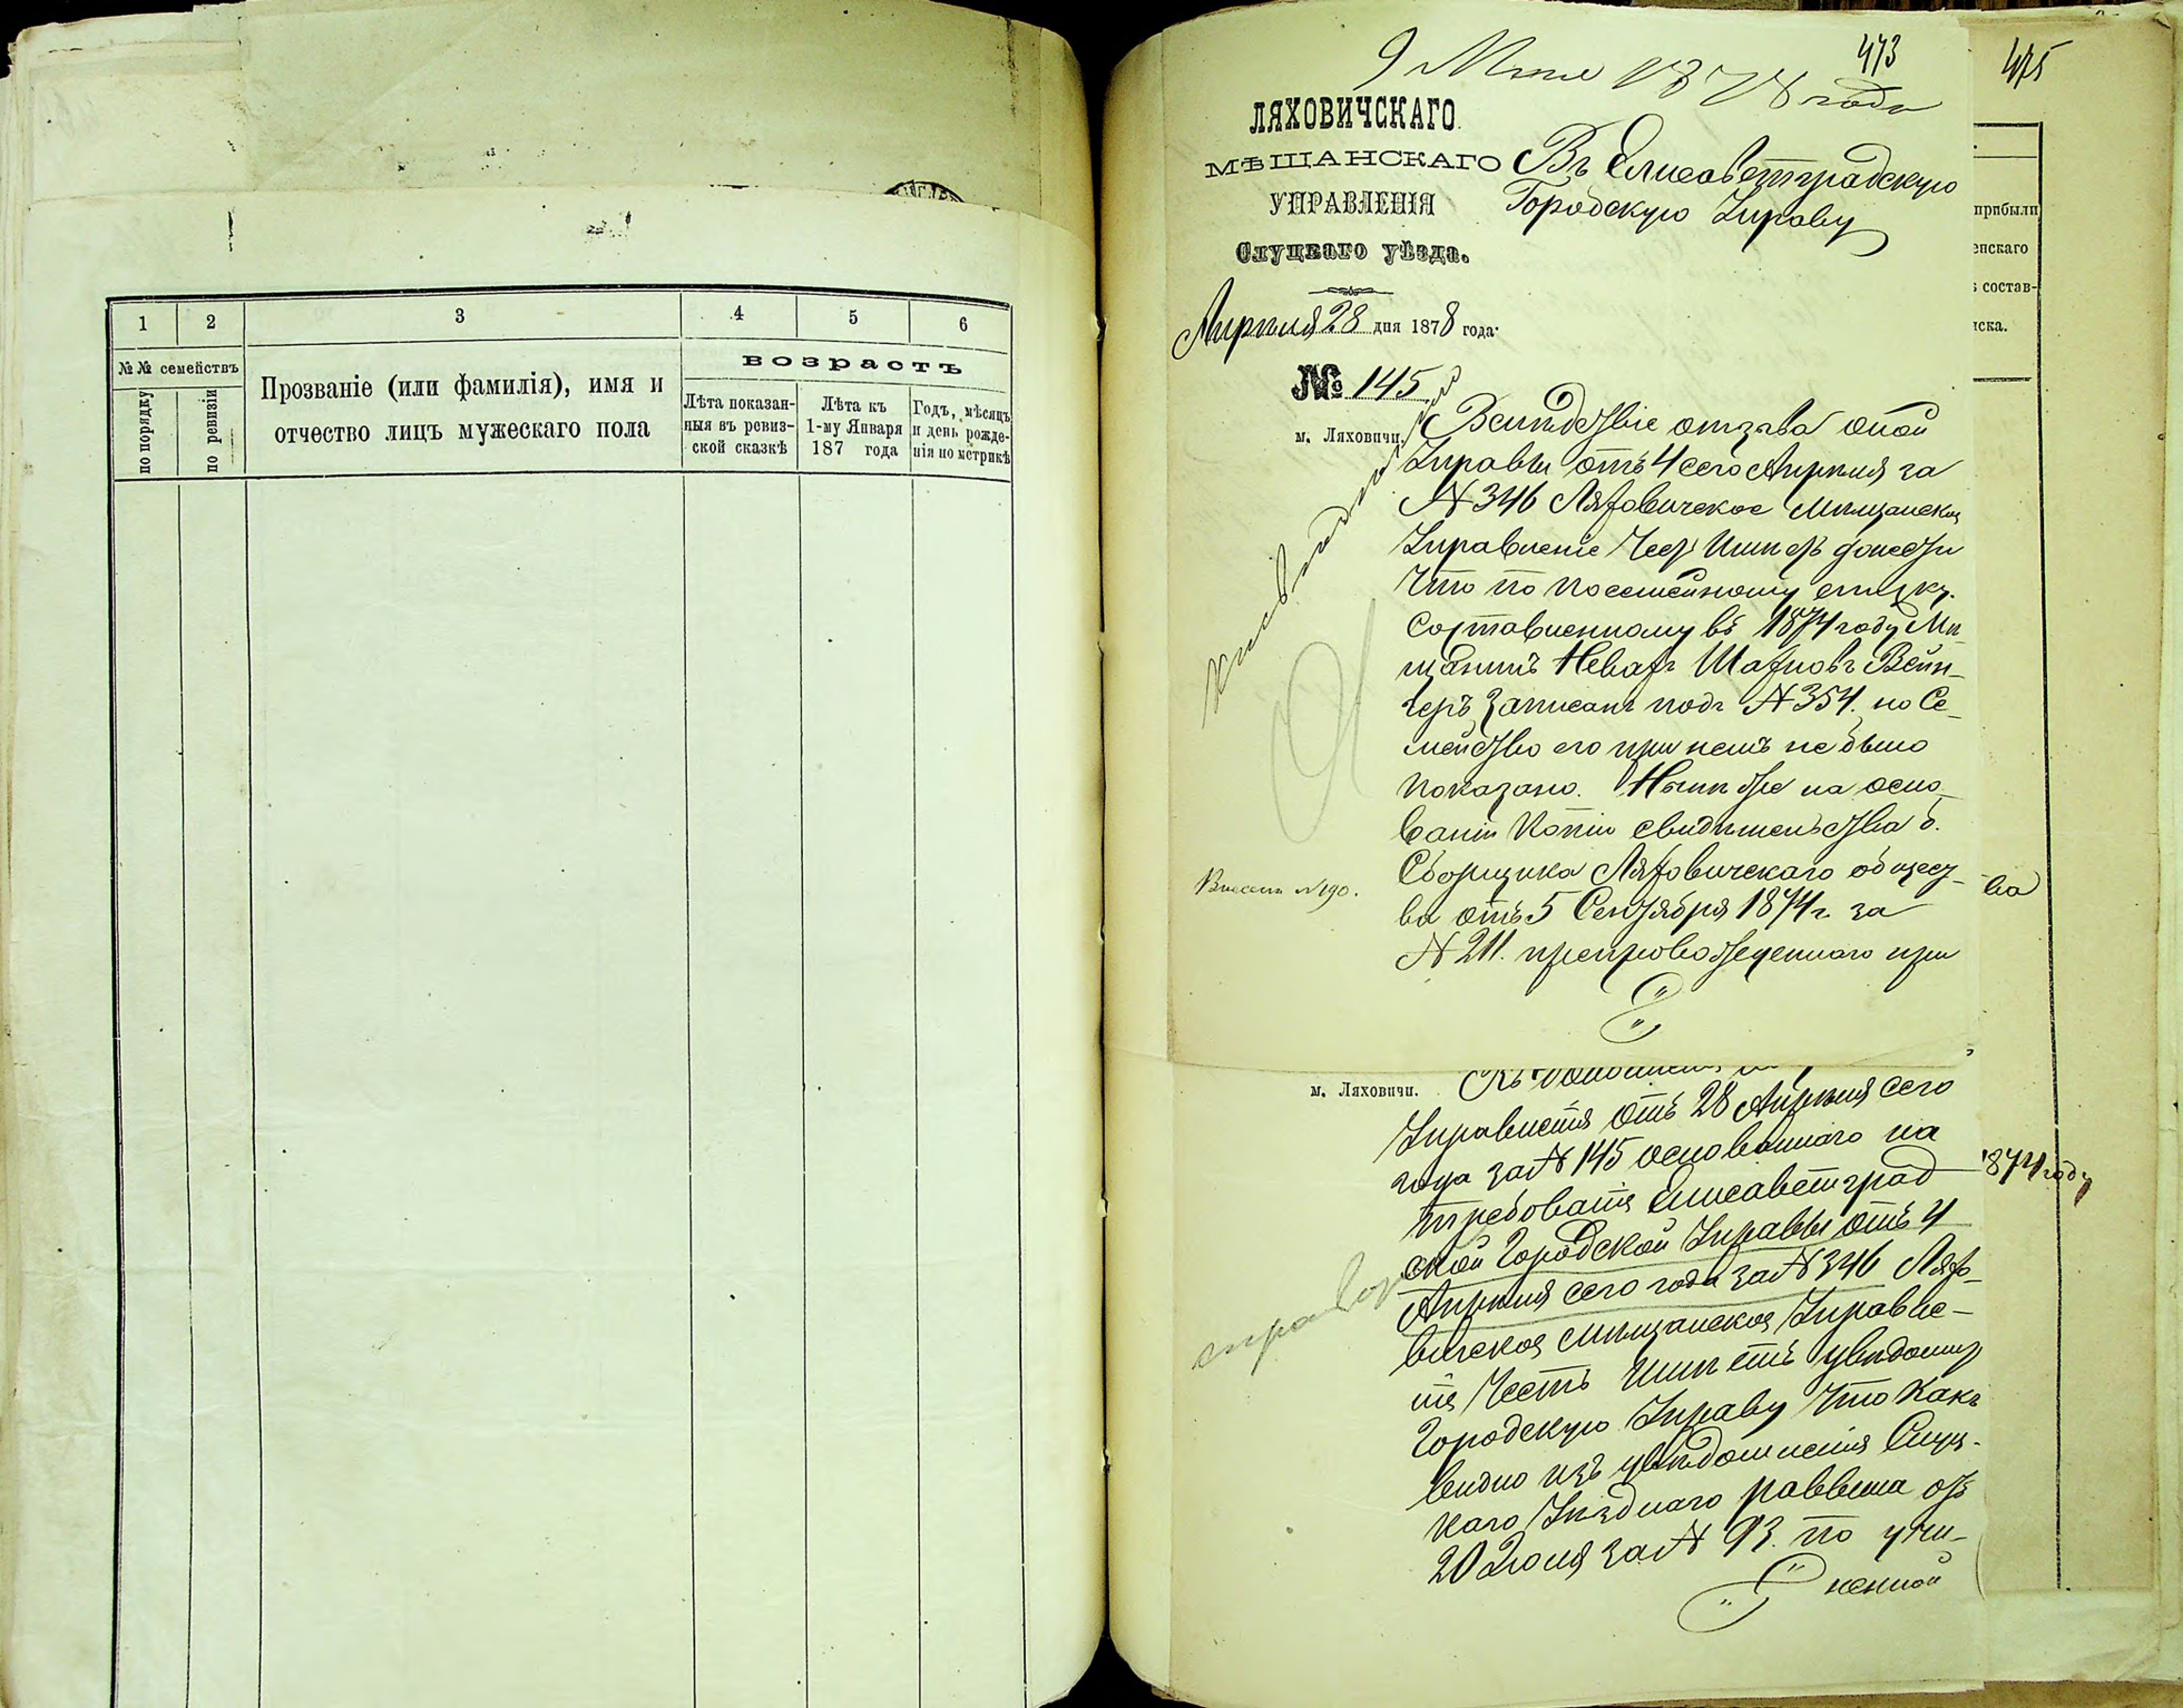 1
2
3
4
5
6
№№ семействъ
по порядку
по ревизіи
Прозваніе (или фамилія), имя и
отчество лицъ мужескаго пола
возрастъ
Лѣта показан-
ныя въ ревиз-
ской сказкѣ
Лѣта къ
1-му Января
187 года
Годъ, мѣсяцъ
и день рожде-
нія по метрикѣ
473
9 Мая 1878 года
ЛЯХОВИЧСКАГО
МѢЩАНСКАГО
УПРАВЛЕНІЯ
Слуцкаго уѣзда.
Апрѣля 28 дня 1878 года.
№ 145
м. Ляховичи.
Въ Елисаветградскую
Городскую Управу
Вслѣдствіе отзыва оной
Управы отъ 4 сего Апрѣля за
№ 346 Ляховичское Мѣщанское
Управленіе Честь имѣетъ донести
Что по посемейному списку
Составленному въ 1874 году Мѣ-
щанинъ Невахъ Вейн-
геръ Записанъ подъ № 354. но Се-
мейство его при немъ не было
показано. Нынѣ же на осно-
ваніи Копіи свидѣтельства б.
Сборщика Ляховичскаго общест-
ва отъ 5 Сентября 1874 г. за
№ 211. препровожденнаго при
Внесен №190.
м. Ляховичи.
Управленія отъ 28 Апрѣля сего
года за № 145 основаннаго на
требованіи Елисаветград
ской Городской Управы отъ 4
Апрѣля сего года за № 346 Ляхо-
вичское Мѣщанское Управле-
ніе Честь имѣетъ увѣдомить
Городскую Управу Что Какъ
видно изъ увѣдомленія Слуц-
каго Уѣзднаго раввина отъ
20 Іюля за № 93. по учи-
ненной
475
прибыли
енскаго
ъ состав-
иска.
ва
1874 году